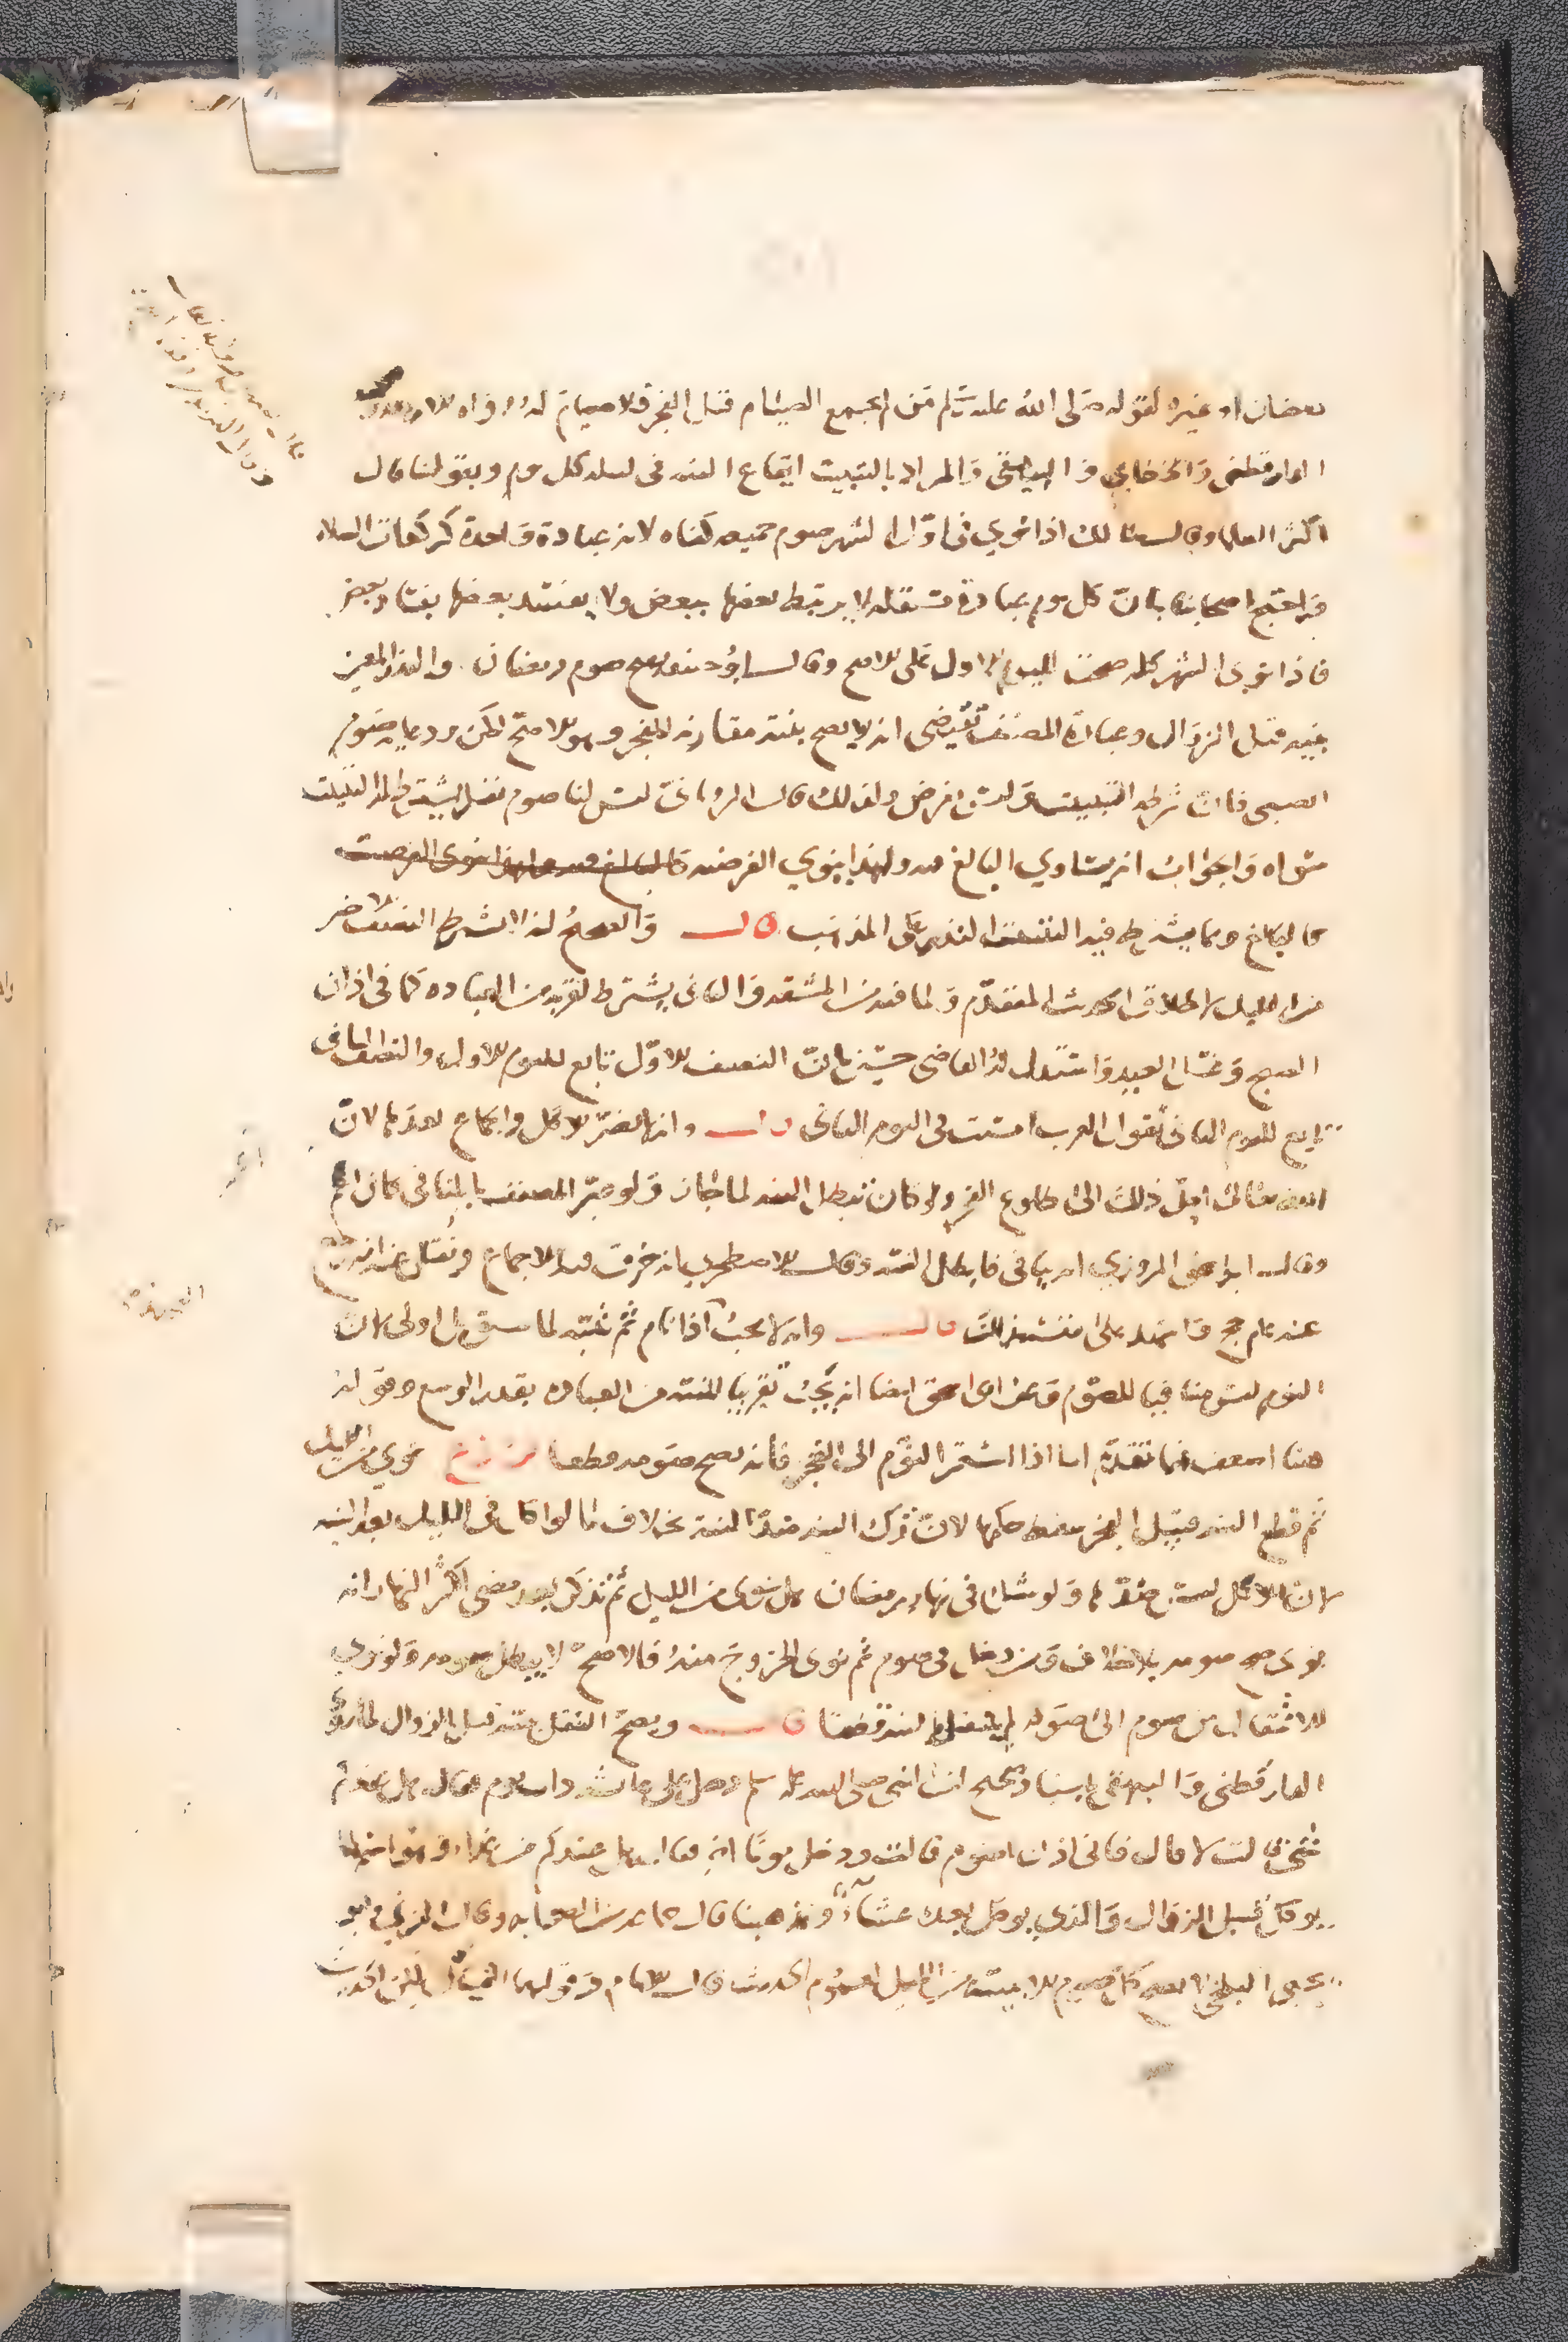 رمضان او غيره لقوله صلى الله عليه وسلم من لم يجمع الصيام قبل الفجر فلا صيام له رواه الاربعة
الدارقطني والخطابي والبيهقي والمراد بالتبييت ايقاع النية في ليلة كل يوم وبقولنا قال
اكثر العلما وقال مالك اذا نوى في اول الشهر صوم جميعه كفاه لانه عبادة واحدة كركعات الصلاة
واحتج اصحابنا بان كل يوم عبادة مستقلة لا يرتبط بعضها ببعض ولا يفسد بعضها بفساد بعض
فاذا نوى الشهر كله صحت لليوم الاول على الاصح وقال ابو حنيفة يصح صوم رمضان والنذر المعين
بنية قبل الزوال وعبارة المصنف تقتضي انه لا يصح بنية مقارنة للفجر وهو الاصح لكن يرد عليه صوم
الصبي فان شرطه التبييت وليس بفرض ولذلك قال الروياني ليس لنا صوم نفل يشترط له التبييت
سواه والجواب انه يساوي البالغ فيه ولهذا ينوي الفرضية
كالبالغ ومما يشترط فيه التبييت النذر على المذهب قال والصحيح انه لا يشترط النصف الاخر
من الليل لاطلاق الحديث المتقدم ولما فيه من المشقة والثاني يشترط لقربه من العبادة كما في اذان
الصبح وغسل العيد واستدل له القاضي حسين بان النصف الاول تابع لليوم الاول والنصف الثاني
تابع لليوم الثاني تقول العرب امسيت في اليوم الثاني قال وانه لا يضر الاكل والجماع بعدها لان
الله تعالى احل ذلك الى طلوع الفجر ولو كان يبطل النية لما جاز ولو عبر المصنف بالمنافي كان اعم
وقال ابو اسحق المروزي انه ينافي فابطل النية وقال الاصطخري انه خرق فيه الاجماع ونقل عنه انه رجع
عنه عام حج واشهد على نفسه بذلك قال وانه لا يجب اذا نام ثم تنبه لما سبق بل اولى لان
النوم ليس منافيا للصوم وعن ابي اسحق ايضا انه يجب تقريبا للنية من العبادة بقدر الوسع وقوله
هنا اضعف مما تقدم اما اذا استمر النوم الى الفجر فانه يصح صومه قطعا فرع نوى من الليل
ثم قطع النية قبل الفجر سقط حكمها لان ترك النية ضد النية بخلاف ما لو اكل في الليل بعد النية
لان الاكل ليس ضدها ولو شك في نهار رمضان هل نوى من الليل ثم تذكر بعد مضي اكثر النهار انه
نوى صح صومه بلا خلاف ومن دخل في صوم ثم نوى الخروج منه فالاصح لا يبطل صومه ولو نوى
الانتقال من صوم الى صوم لم ينتقل اليه قطعا قال ويصح النفل بنية قبل الزوال لما روى
الدارقطني والبيهقي باسناد صحيح ان النبي صلى الله عليه وسلم دخل على عائشة ذات يوم فقال هل عندكم
شي قالت لا قال فاني اذا اصوم قالت ودخل يوما اخر فقال هل عندكم من غداء وهو اسم لما
يوكل قبل الزوال والذي يوكل بعده عشاء ومذهبنا قال جماعة من الصحابة وقال المزني وابو
يحيى البلخي لا يصح كل صوم الا بنية من الليل لعموم الحديث قال الامام وقولهما القياس لكن الحديث